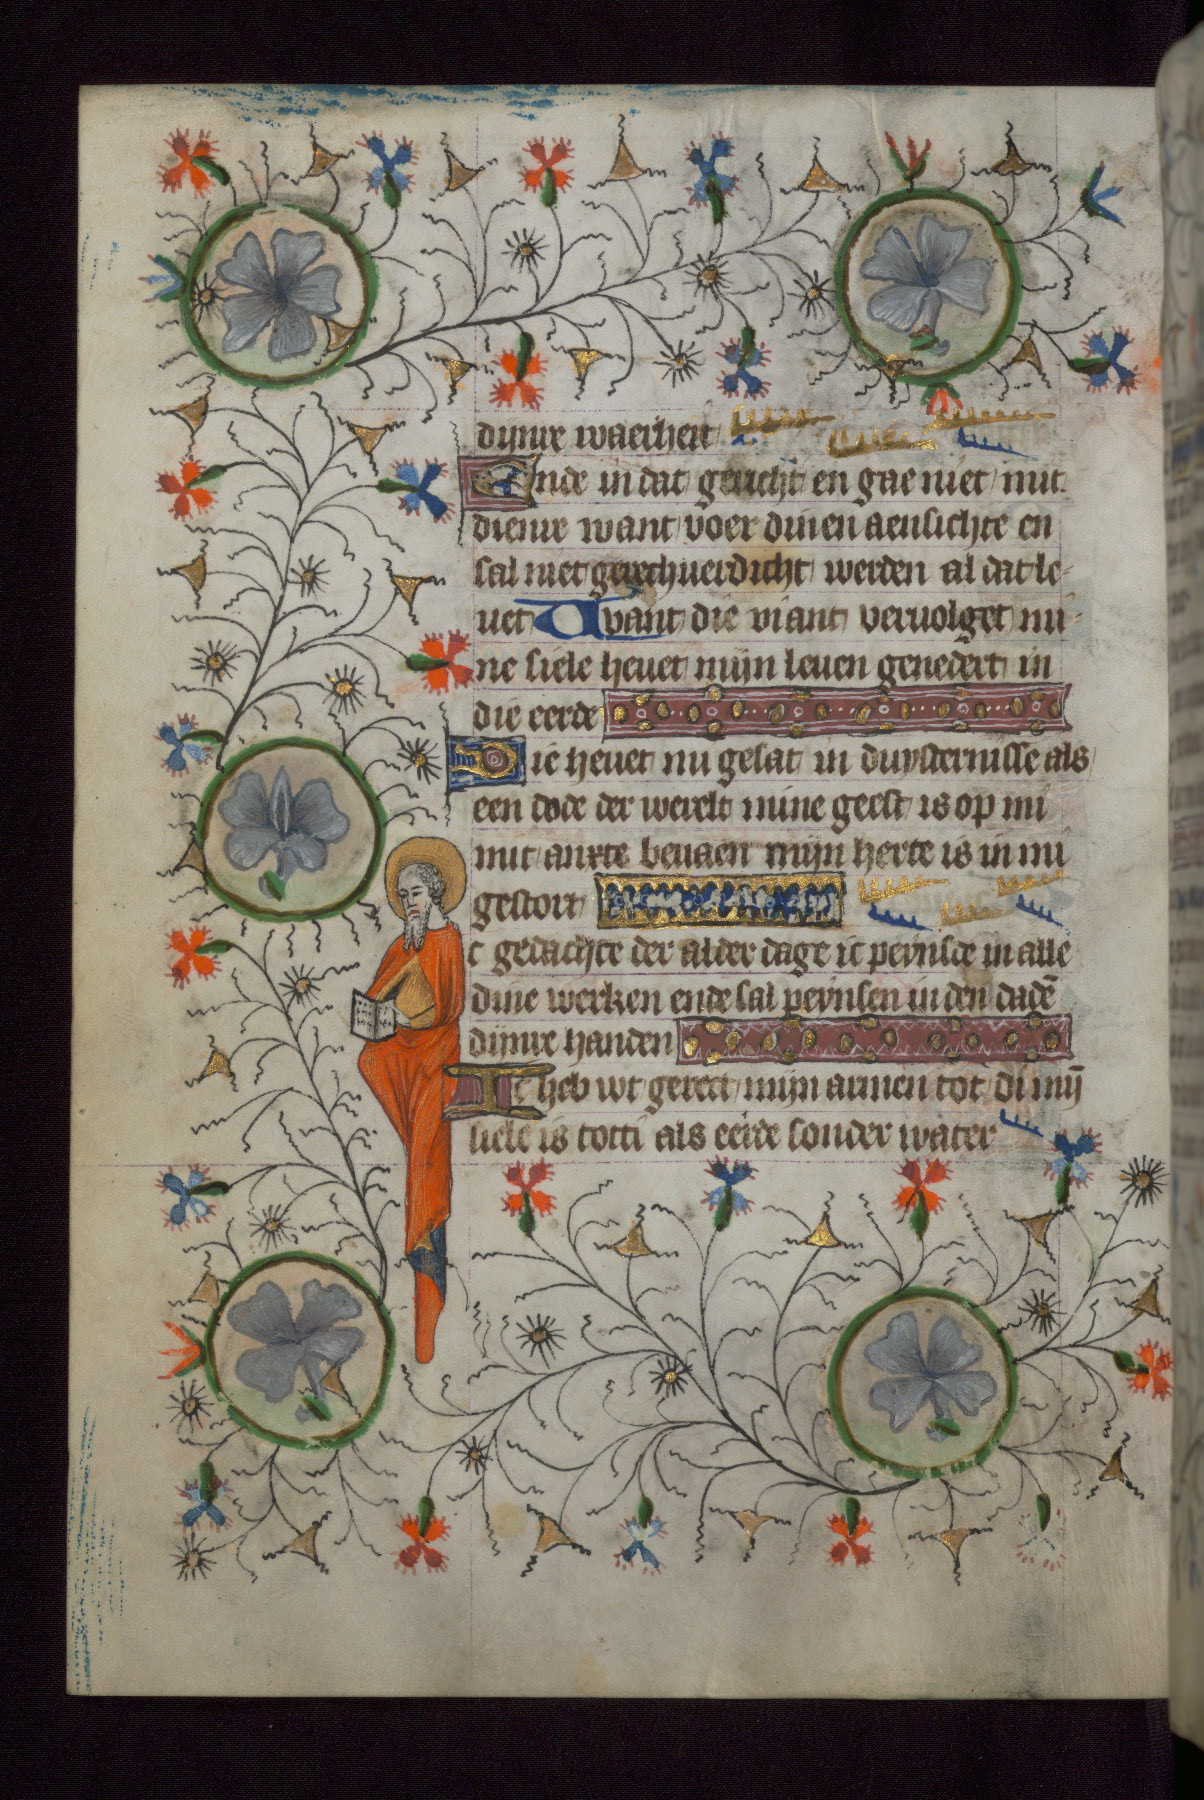 dijnre waerheit
Ende in dat gericht en gae niet mit
dienre want voer dinen aensichte en
sal niet gerechuerdicht werden al dat le-
uet Want die viant veruolget mi-
ne siele heuet mijn leuen genedert in
die eerde
Hie heuet mi gesat in duysternisse als
een dode der werelt mine geest is op mi
mit anxte beuaen mijn herte is in mi
gestort
Ic gedachte der alder dage ic peynsde in alle
dine werken ende sal peynsen in den dadē
dijnre handen
Ic heb wt gerect mijn armen tot di mijn
siele is totti als eerde sonder water